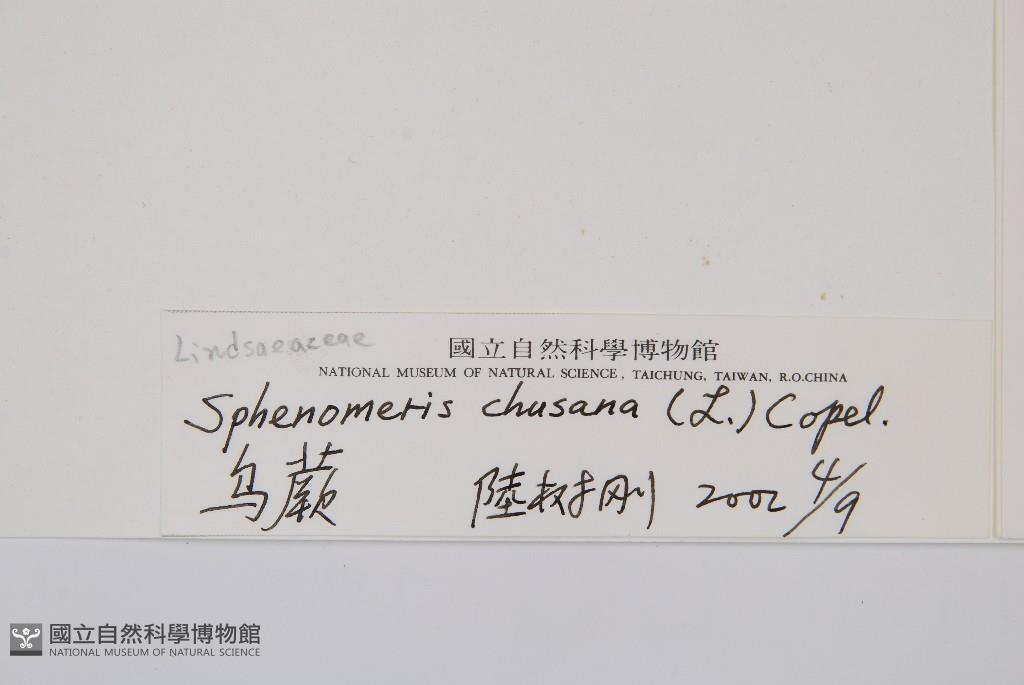 Lindsaeaceae
國立自然科學博物館
NATIONAL MUSEUM OF NATURAL SCIENCE, TAICHUNG, TAIWAN, R.O.CHINA
Sphenomeris chusana (L.) Copel.
乌蕨 陸树刚 2002 4/9
國立自然科學博物館
NATIONAL MUSEUM OF NATURAL SCIENCE